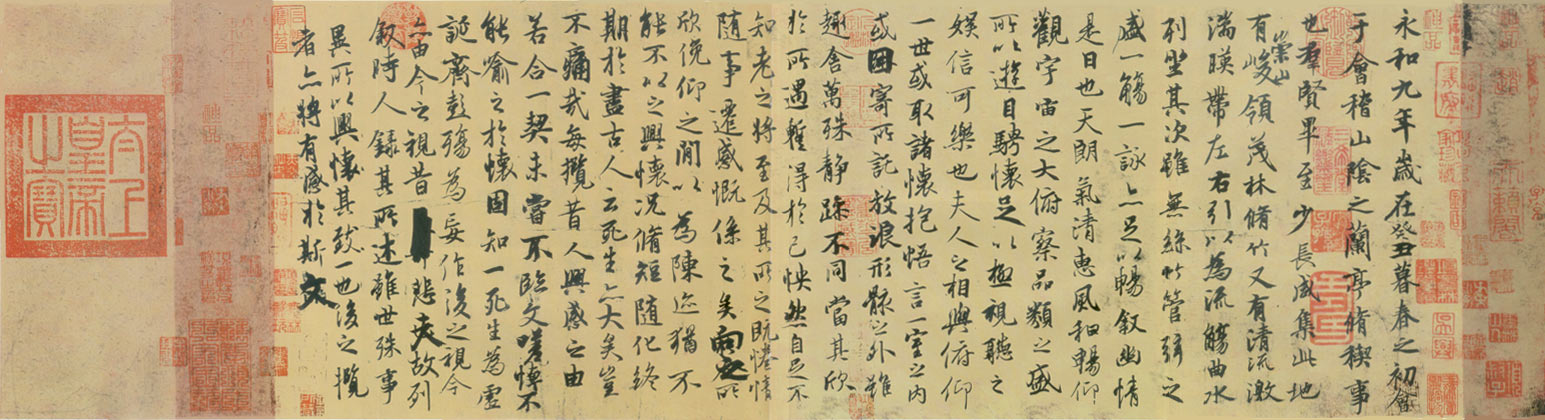 永和九年歲在癸丑暮春之初會
于會稽山陰之蘭亭脩禊事
也羣賢畢至少長咸集此地
有崇山峻領茂林脩竹又有清流激
湍暎帶左右引以為流觴曲水
列坐其次雖無絲竹管弦之
盛一觴一詠亦足以暢敘幽情
是日也天朗氣清惠風和暢仰
觀宇宙之大俯察品類之盛
所以遊目騁懷足以極視聽之
娛信可樂也夫人之相與俯仰
一世或取諸懷抱悟言一室之內
或因寄所託放浪形骸之外雖
趣舍萬殊靜躁不同當其欣
於所遇蹔得於己怏然自足不
知老之將至及其所之既惓情
隨事遷感慨係之矣向之所
欣俛仰之閒以為陳迹猶不
能不以之興懷況脩短隨化終
期於盡古人云死生亦大矣豈
不痛哉每攬昔人興感之由
若合一契未嘗不臨文嗟悼不
能喻之於懷固知一死生為虛
誕齊彭殤為妄作後之視今
亦由今之視昔悲夫故列
敘時人錄其所述雖世殊事
異所以興懷其致一也後之攬
者亦將有感於斯文
太上
皇帝
之寶